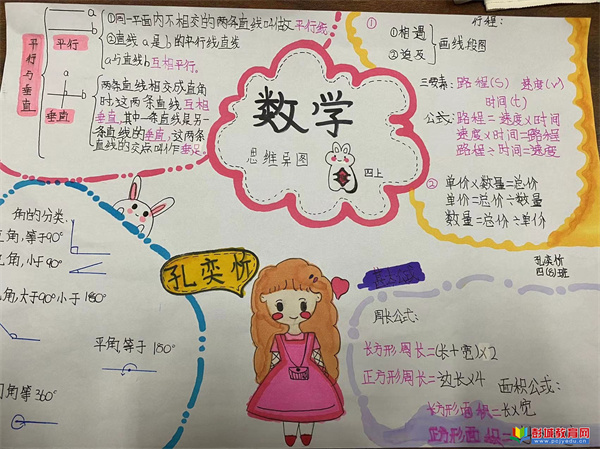 平行与垂直
a
b
平行
①同一平面内不相交的两条直线叫做平行线
②直线a是b的平行线直线
a与直线b互相平行。
a
b
垂直
两条直线相交成直角
时这两条直线互相
垂直,其中一条直线是另一
条直线的垂直,这两条
直线的交点叫作垂足。
数学
思维导图
四上
①
行程:
①相遇
②追及
画线段图
三要素:路程(S) 速度(v)
时间(t)
公式:路程=速度×时间
速度×时间=路程
路程÷时间=速度
② 单价×数量=总价
单价=总价÷数量
数量=总价÷单价
孔奕忻
四(8)班
角的分类.
角,等于90°
角,小于90°
角,大于90°小于180°
平角,等于180°
角等360°
孔奕忻
周长公式:
长方形周长=(长+宽)×2
正方形周长=边长×4
面积公式:
长方形面积=长×宽
正方形面积=
彭城教育网
www.pcjyedu.cn